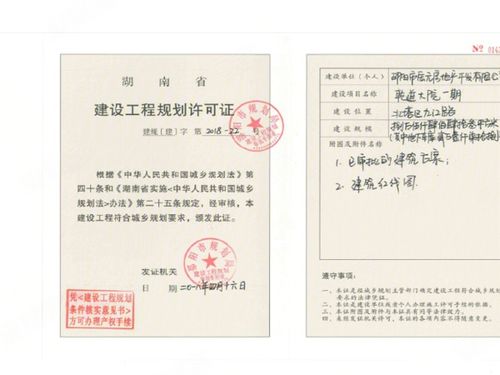 湖南省
建设工程规划许可证
建规〔建〕字 第 2018-22 号
根据《中华人民共和国城乡规划法》第
四十条和《湖南省实施<中华人民共和国城乡
规划法>办法》第二十五条规定，经审核，本
建设工程符合城乡规划要求，颁发此证。
发证机关
日 期 二〇一八年四月十六日
邵阳市规划局
建设工程规划
凭<建设工程规划
条件核实意见书>
方可办理产权手续
№ 014
建设单位（个人）
建设项目名称 一期
建设位置
建设规模
附图及附件名称
1. 已审批的建筑方案；
2. 建筑红线图.
遵守事项：
一、本证是经城乡规划主管部门确定建设工程符合城乡规划
要求的法律凭证。
二、本证是建设单位或者个人办理施工许可手续的依据。
三、本证附图及附件与本证具有同等法律效力。
四、未经发证机关许可，本证的各项内容不得随意变更。